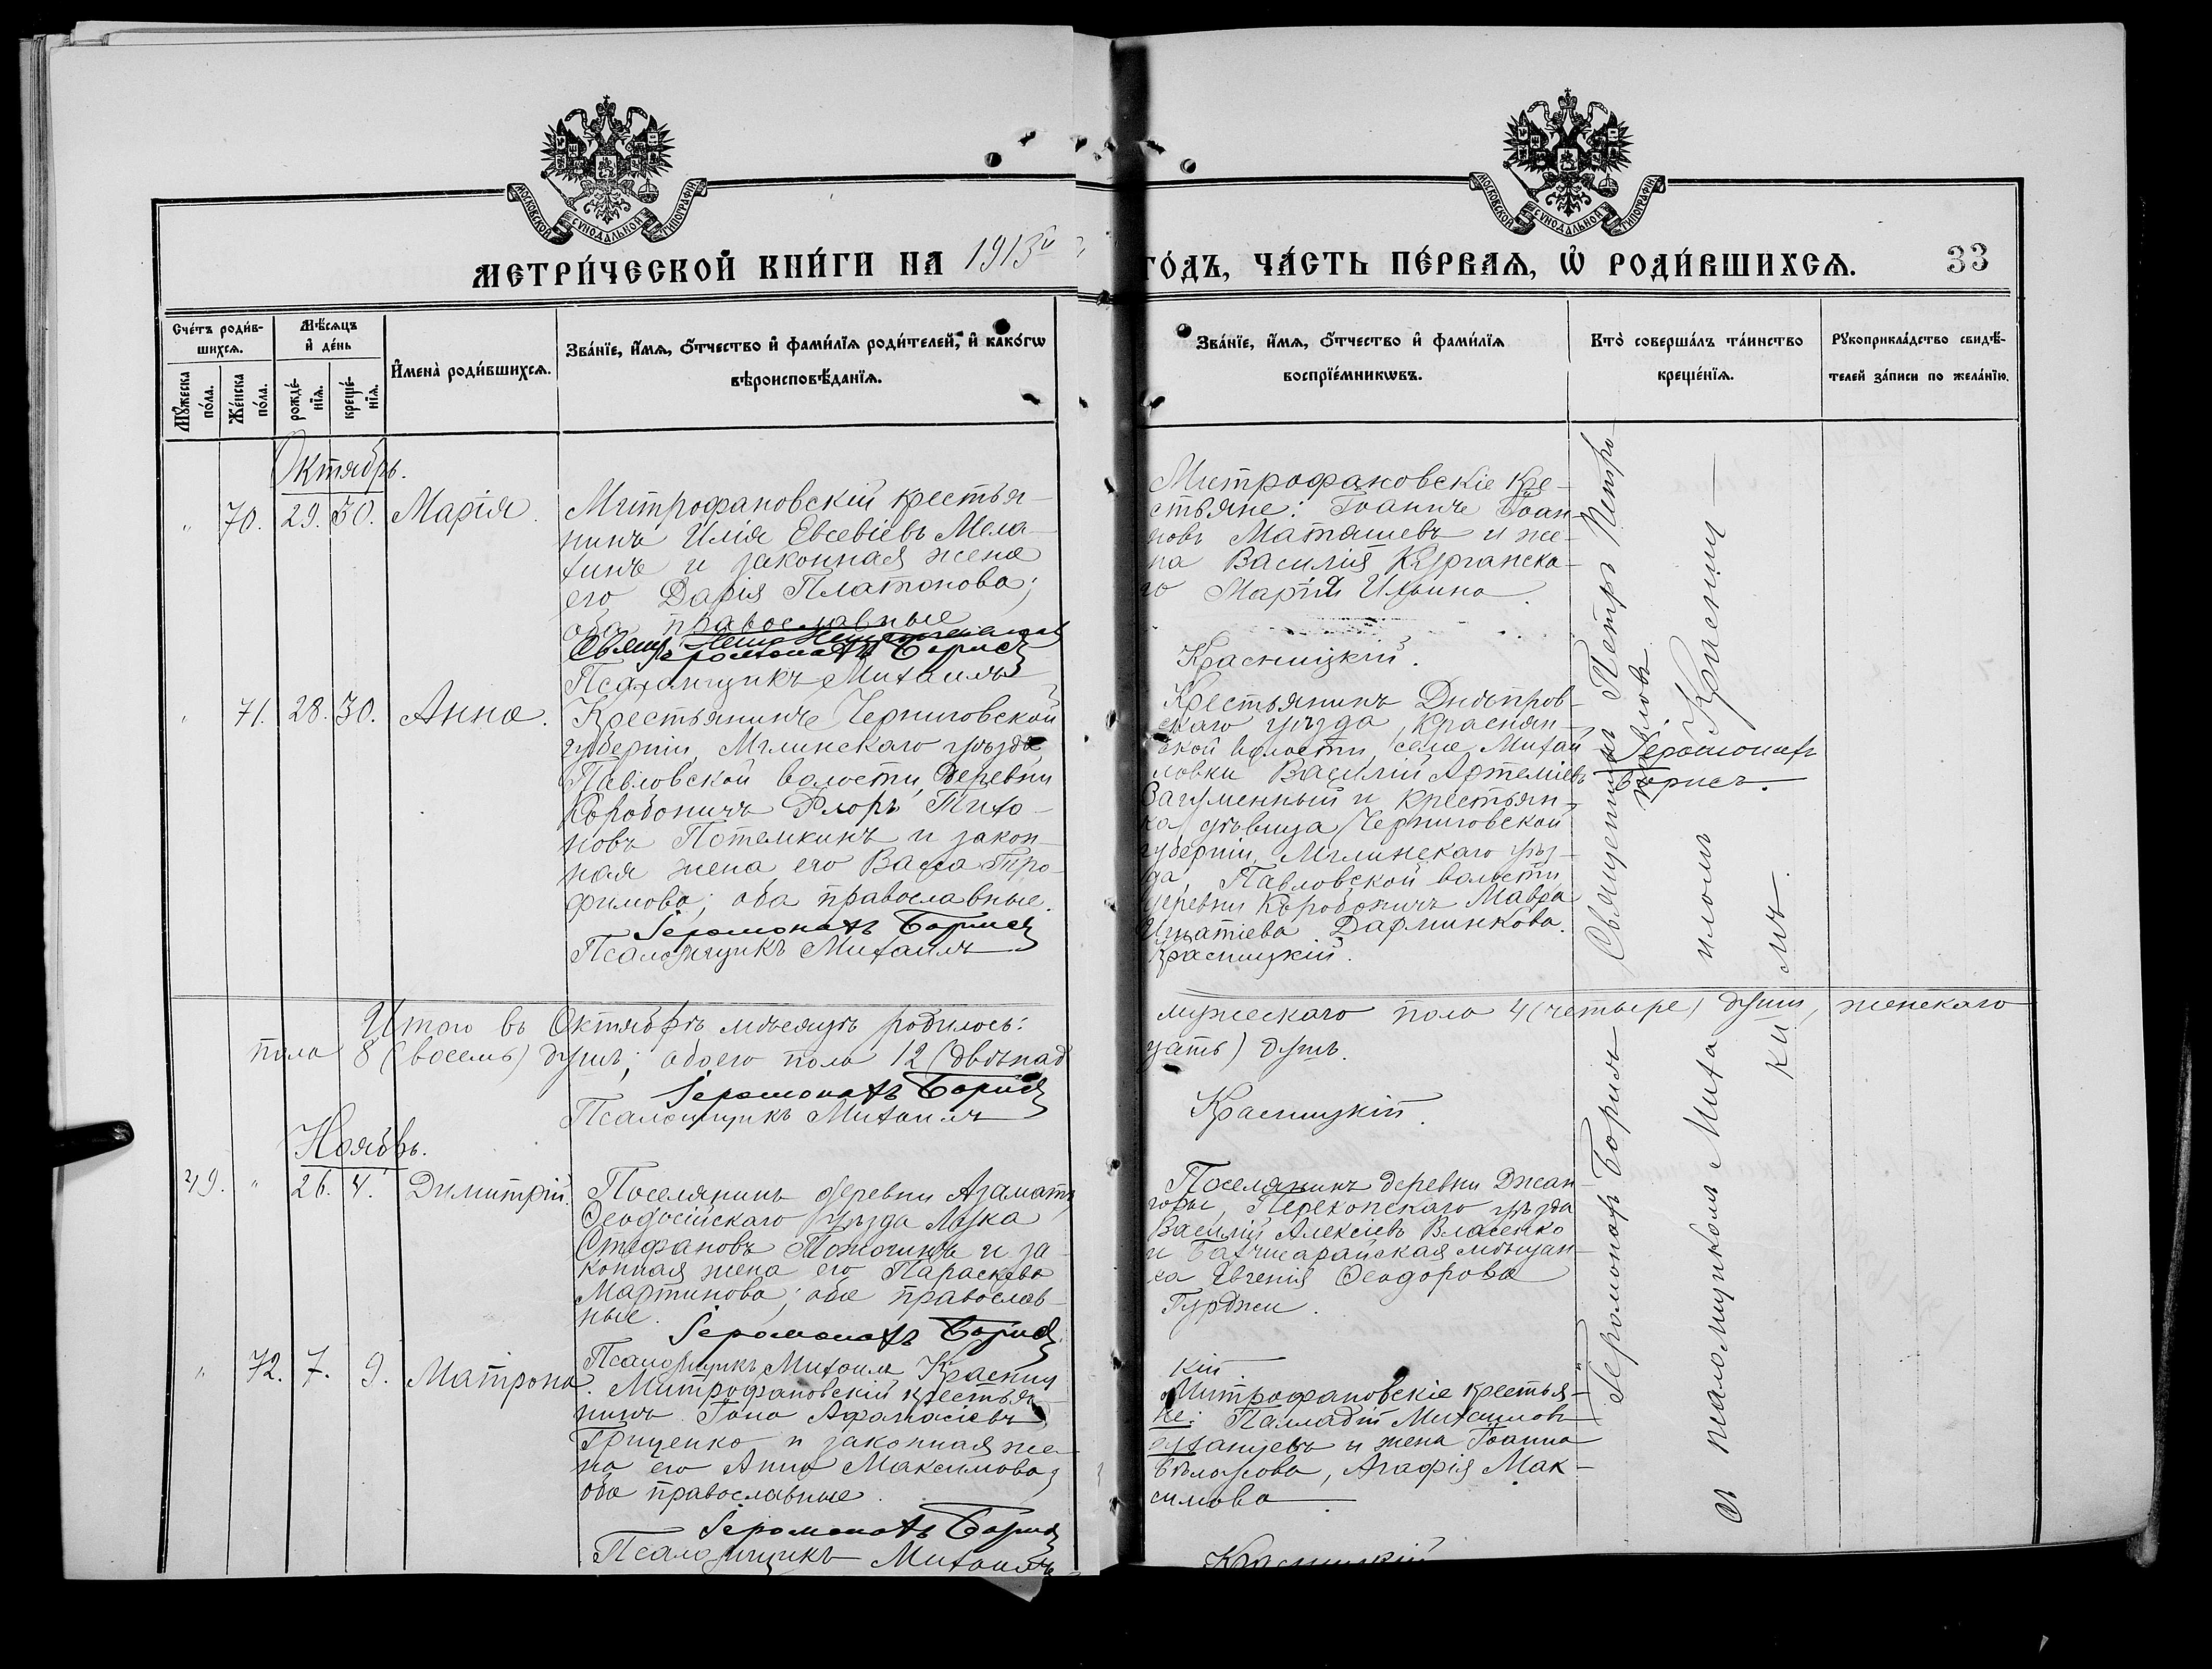 МОСКОВСКОЙ СѴНОДАЛЬНОЙ ТИПОГРАФІИ
МОСКОВСКОЙ СѴНОДАЛЬНОЙ ТИПОГРАФІИ
МЕТРИ́ЧЕСКОЙ КНИ́ГИ НА 1913й
ГО́ДЪ, ЧА́СТЬ ПЕ́РВАѦ, Ѽ РОДИ́ВШИХСѦ. 33
Сче́тъ роди́в-
шихсѧ.
Мꙋ́жеска
по́ла.
Же́нска
по́ла.
Мѣ́сѧцъ
и҆ де́нь
рожде́-
нїѧ.
креще́-
нїѧ.
И҆мена̀ роди́вшихсѧ.
Зва́нїе, и҆́мѧ, ѻ҆́тчество и҆ фами́лїѧ роди́телей, и҆ како́гѡ
вѣроисповѣ́данїѧ.
Зва́нїе, и҆́мѧ, ѻ҆́тчество и҆ фами́лїѧ
воспрїе́мникѡвъ.
Кто̀ соверша́лъ та́инство
креще́нїѧ.
Рꙋкоприкла́дство свидѣ́-
телей за́писи по жела́нїю.
Октябрь.
" 70. 29. 30. Марія.
Митрофановскій крестья-
нинъ Илія Евсевіевъ Мела-
хинъ и законная жена
его Дарія Платонова;
оба православные
Свящ.
Іеромонахъ Борисъ
Псаломщикъ Михаилъ
Митрофановскіе кре-
стьяне: Іоаннъ Іоан-
новъ Матяшевъ и же-
на Василія Курганска-
го Марія Ильина.
Красницкій.
" 71. 28. 30. Анна.
Крестьянинъ Черниговской
губерніи, Мглинскаго уѣзда,
Павловской волости, деревни
Коробоничъ Флоръ Тихо-
новъ Потемкинъ и закон-
ная жена его Васса Тро-
фимова; оба православные.
Іеромонахъ Борисъ
Псаломщикъ Михаилъ
Крестьянинъ Днѣпров-
скаго уѣзда, Краснян-
ской волости, села Михай
ловки Василій Артеміевъ
Загуменный и крестьян-
ка дѣвица Черниговской
губерніи, Мглинскаго уѣз-
да, Павловской волости,
деревни Коробоничъ Мавра
Игнатіева Дарминкова.
Красницкій.
Священникъ Петръ Петро
павловъ
Іеромонахъ
Борисъ.
Итого въ Октябрѣ мѣсяцѣ родилось:
мужескаго пола 4 (четыре) души, женскаго
пола 8 (восемь) душъ; обоего пола 12 (двѣнад
цать) душъ.
Іеромонахъ Борисъ
Псаломщикъ Михаилъ
Красницкій.
Ноябрь.
49. " 26. 4. Димитрій.
Поселянинъ деревни Азаматъ,
Ѳеодосійскаго уѣзда Лука
Стефановъ Поночинъ и за
конная жена его Параскева
Мартинова; оба православ-
ные.
Іеромонахъ Борисъ
Псаломщикъ Михаилъ Красниц
Поселянинъ деревни Джан-
горы, Перекопскаго уѣзда
Василій Алексіевъ Власенко
и Бахчисарайская мѣщан-
ка Евгенія Ѳеодорова
Гурджи.
кій
" 72. 7. 9. Матрона.
Митрофановскій крестья-
нинъ Іона Афанасіевъ
Гриценко и законная же-
на его Анна Максимова;
оба православные.
Іеромонахъ Борисъ
Псаломщикъ Михаилъ
Митрофановскіе крестья-
не: Палладій Михаиловъ
и жена Іоанна
Бѣлоусова, Агафія Мак-
симова.
Красницкій
Іеромонахъ Борисъ
съ псаломщикомъ Михаиломъ Красницкимъ.